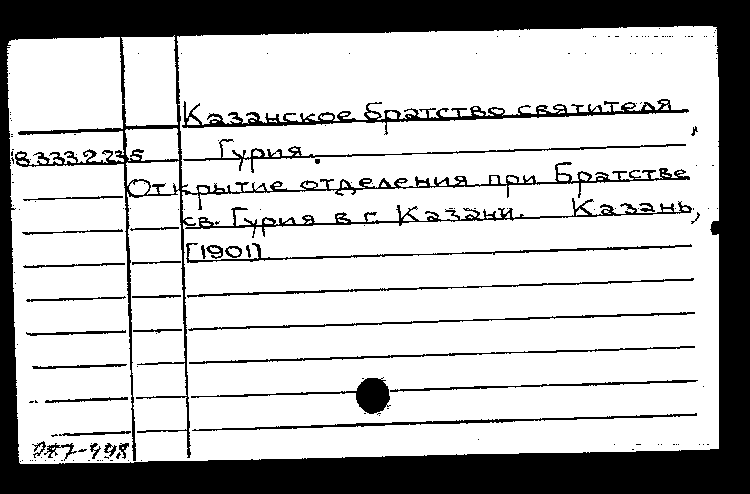 Казанское братство святителя
8.333.2.235 Гурия.
Открытие отделения при Братстве
св. Гурия в г. Казани. Казань,
[1901]